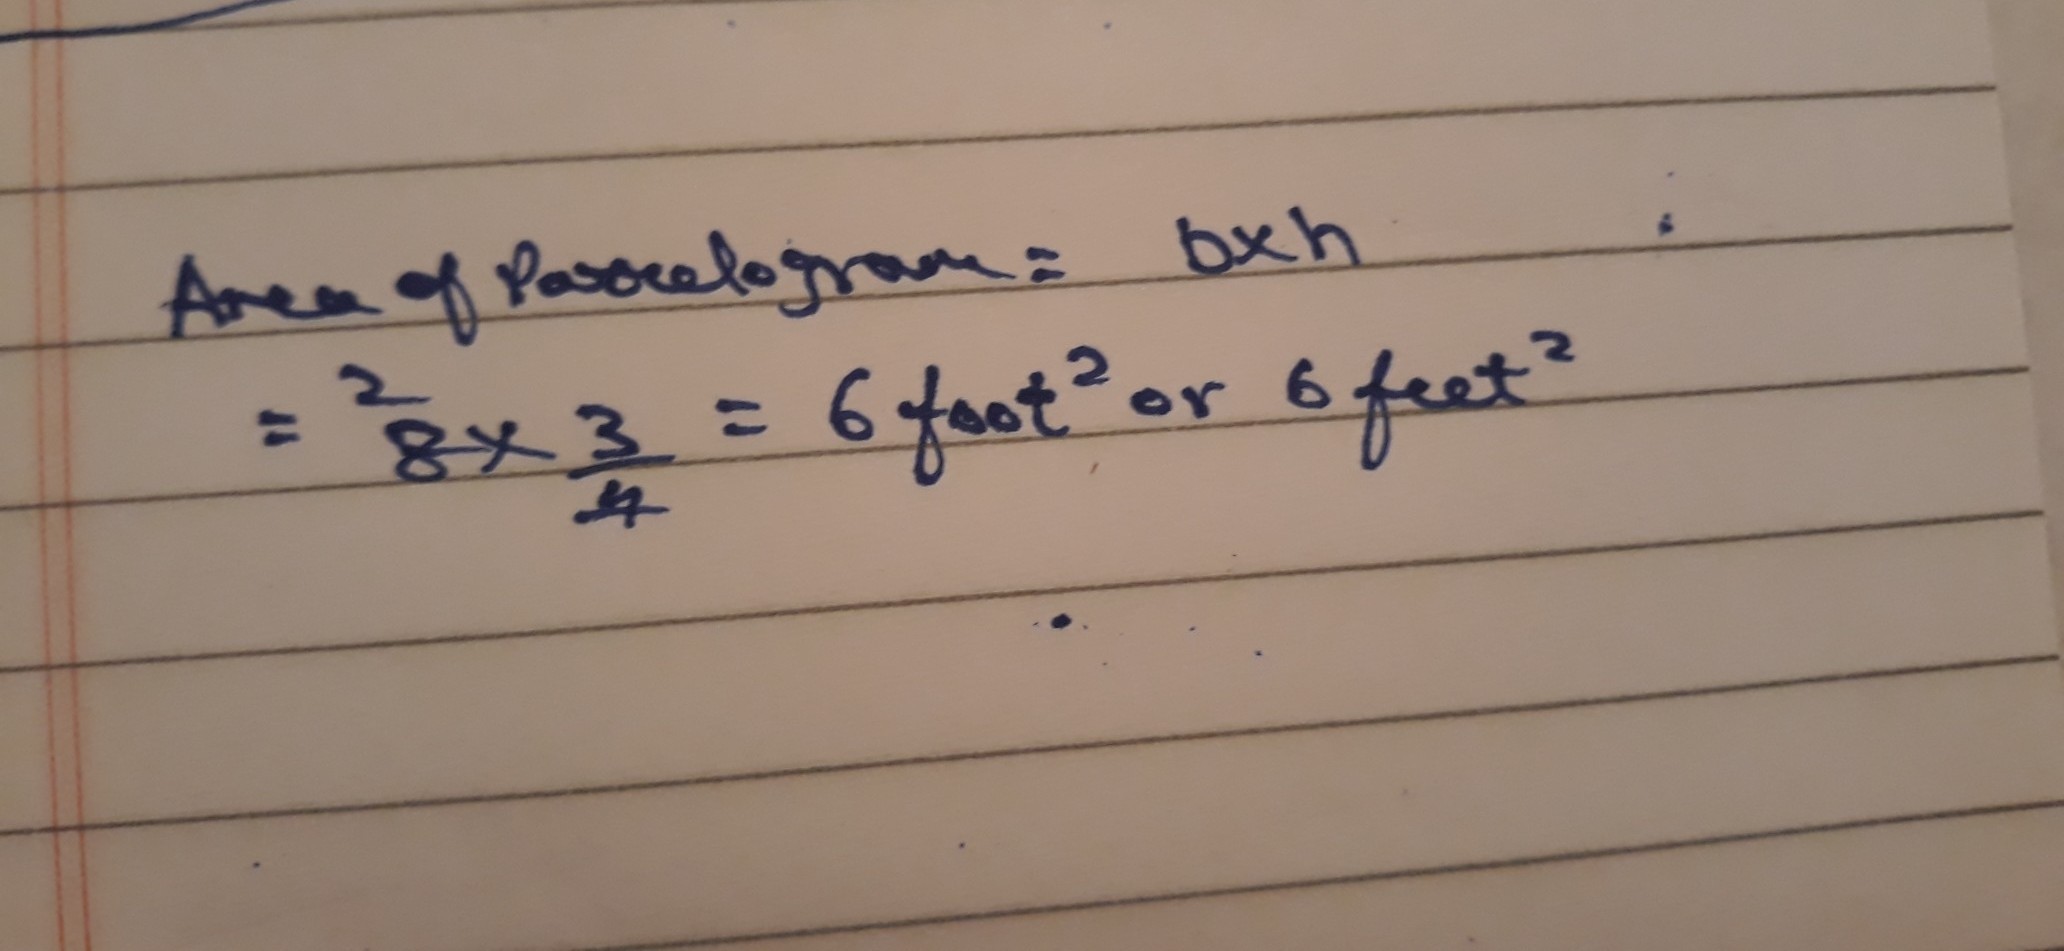 Area of Parrelogram = b×h
= ²8 × 3/4 = 6 foot² or 6 feet²